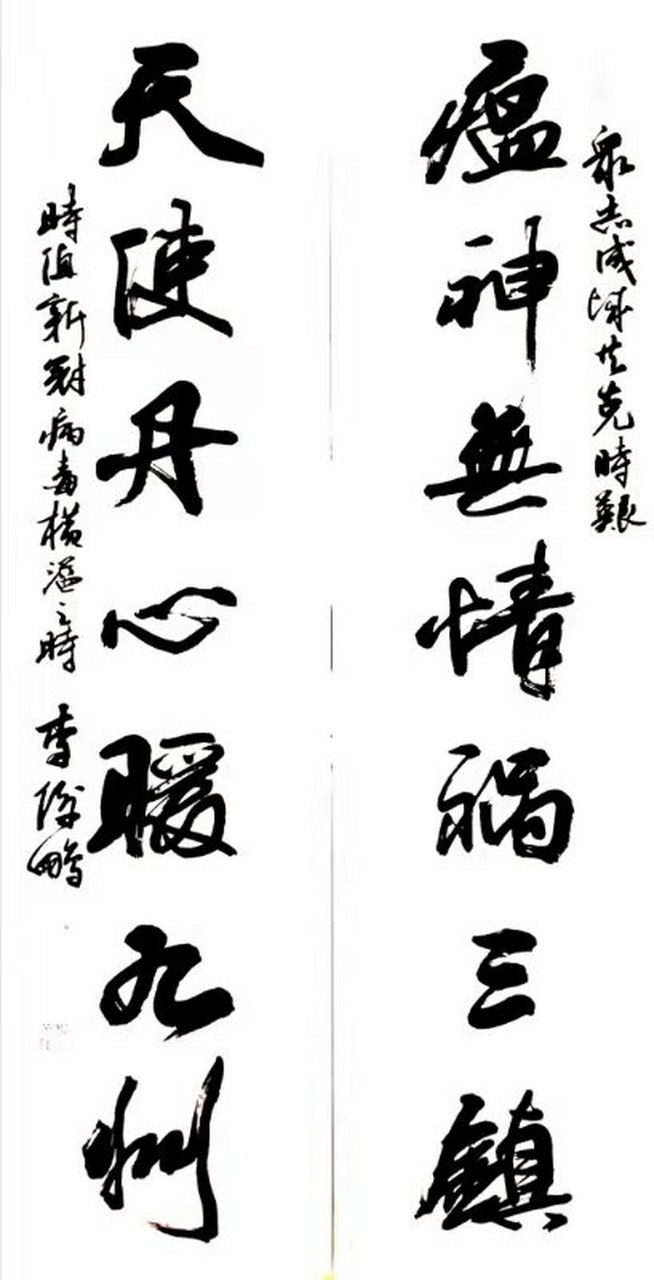 眾志成城共克時艱
瘟神無情禍三鎮
天使丹心暖九州
時值新冠病毒橫溢之時 李